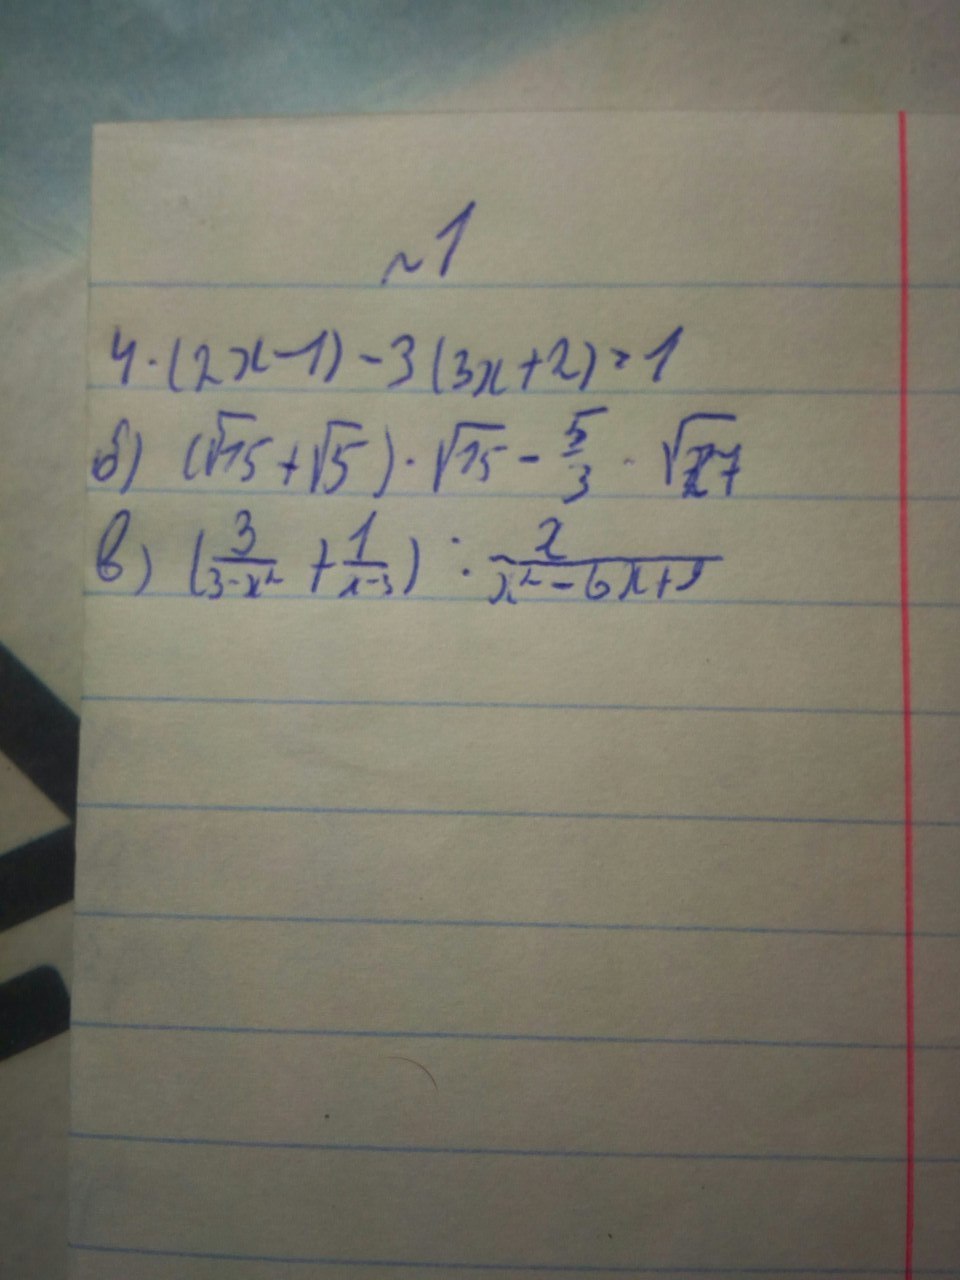 ~1
4·(2x-1)-3(3x+2)=1
б) (√15+√5)·√15-5/3·√27
в) (3/(3-x²)+1/(x-3)):x/(x²-6x+9)